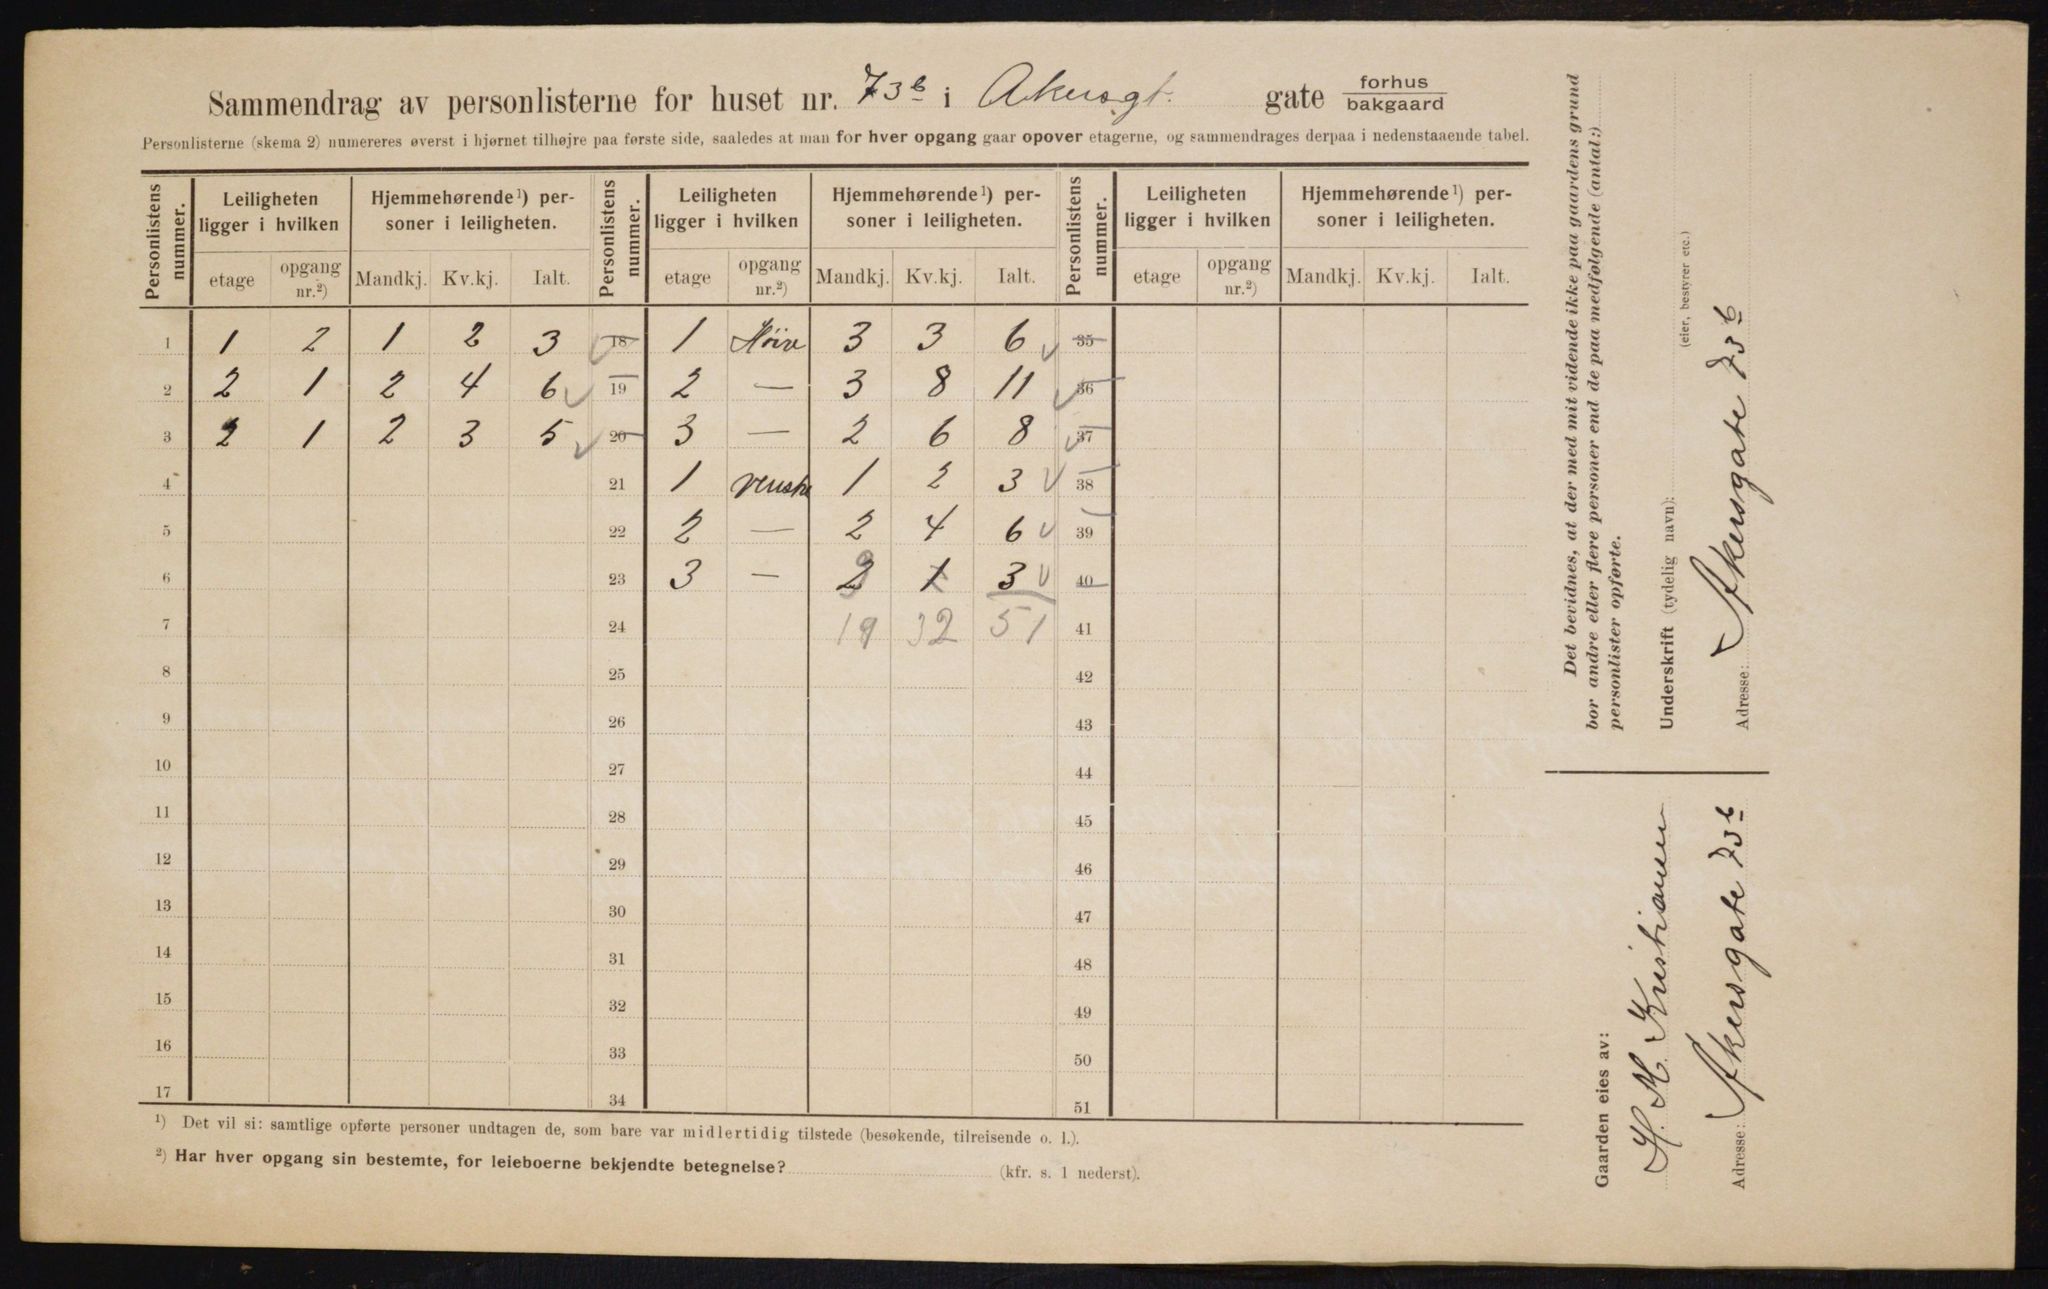 Sammendrag av personlisterne for huset nr. 73 b i Akersgt. gate forhus / bakgaard
Personlisterne (skema 2) numereres øverst i hjørnet tilhøjre paa første side, saaledes at man for hver opgang gaar opover etagerne, og sammendrages derpaa i nedenstaaende tabel.
Personlistens nummer. | Leiligheten ligger i hvilken | Hjemmehørende¹) personer i leiligheten. | Personlistens nummer. | Leiligheten ligger i hvilken | Hjemmehørende¹) personer i leiligheten. | Personlistens nummer. | Leiligheten ligger i hvilken | Hjemmehørende¹) personer i leiligheten.
etage | opgang nr.²) | Mandkj. | Kv.kj. | Ialt. | etage | opgang nr.²) | Mandkj. | Kv.kj. | Ialt. | etage | opgang nr.²) | Mandkj. | Kv.kj. | Ialt.
1 | 1 | 2 | 1 | 2 | 3 | 18 | 1 | Høire | 3 | 3 | 6 | 35
2 | 2 | 1 | 2 | 4 | 6 | 19 | 2 | — | 3 | 8 | 11 | 36
3 | 2 | 1 | 2 | 3 | 5 | 20 | 3 | — | 2 | 6 | 8 | 37
4 | 21 | 1 | venstre | 1 | 2 | 3 | 38
5 | 22 | 2 | — | 2 | 4 | 6 | 39
6 | 23 | 3 | — | 2 | 1 | 3 | 40
7 | 24 | 19 | 32 | 51 | 41
8 | 25 | 42
9 | 26 | 43
10 | 27 | 44
11 | 28 | 45
12 | 29 | 46
13 | 30 | 47
14 | 31 | 48
15 | 32 | 49
16 | 33 | 50
17 | 34 | 51
¹) Det vil si: samtlige opførte personer undtagen de, som bare var midlertidig tilstede (besøkende, tilreisende o. l.).
²) Har hver opgang sin bestemte, for leieboerne bekjendte betegnelse? (kfr. s. 1 nederst).
Det bevidnes, at der med mit vidende ikke paa gaardens grund
bor andre eller flere personer end de paa medfølgende (antal:)
personlister opførte.
Underskrift (tydelig navn):
(eier, bestyrer etc.)
Adresse: Akersgate 73 b
Gaarden eies av:
H. M. Kristiansen
Adresse: Akersgate 73 b